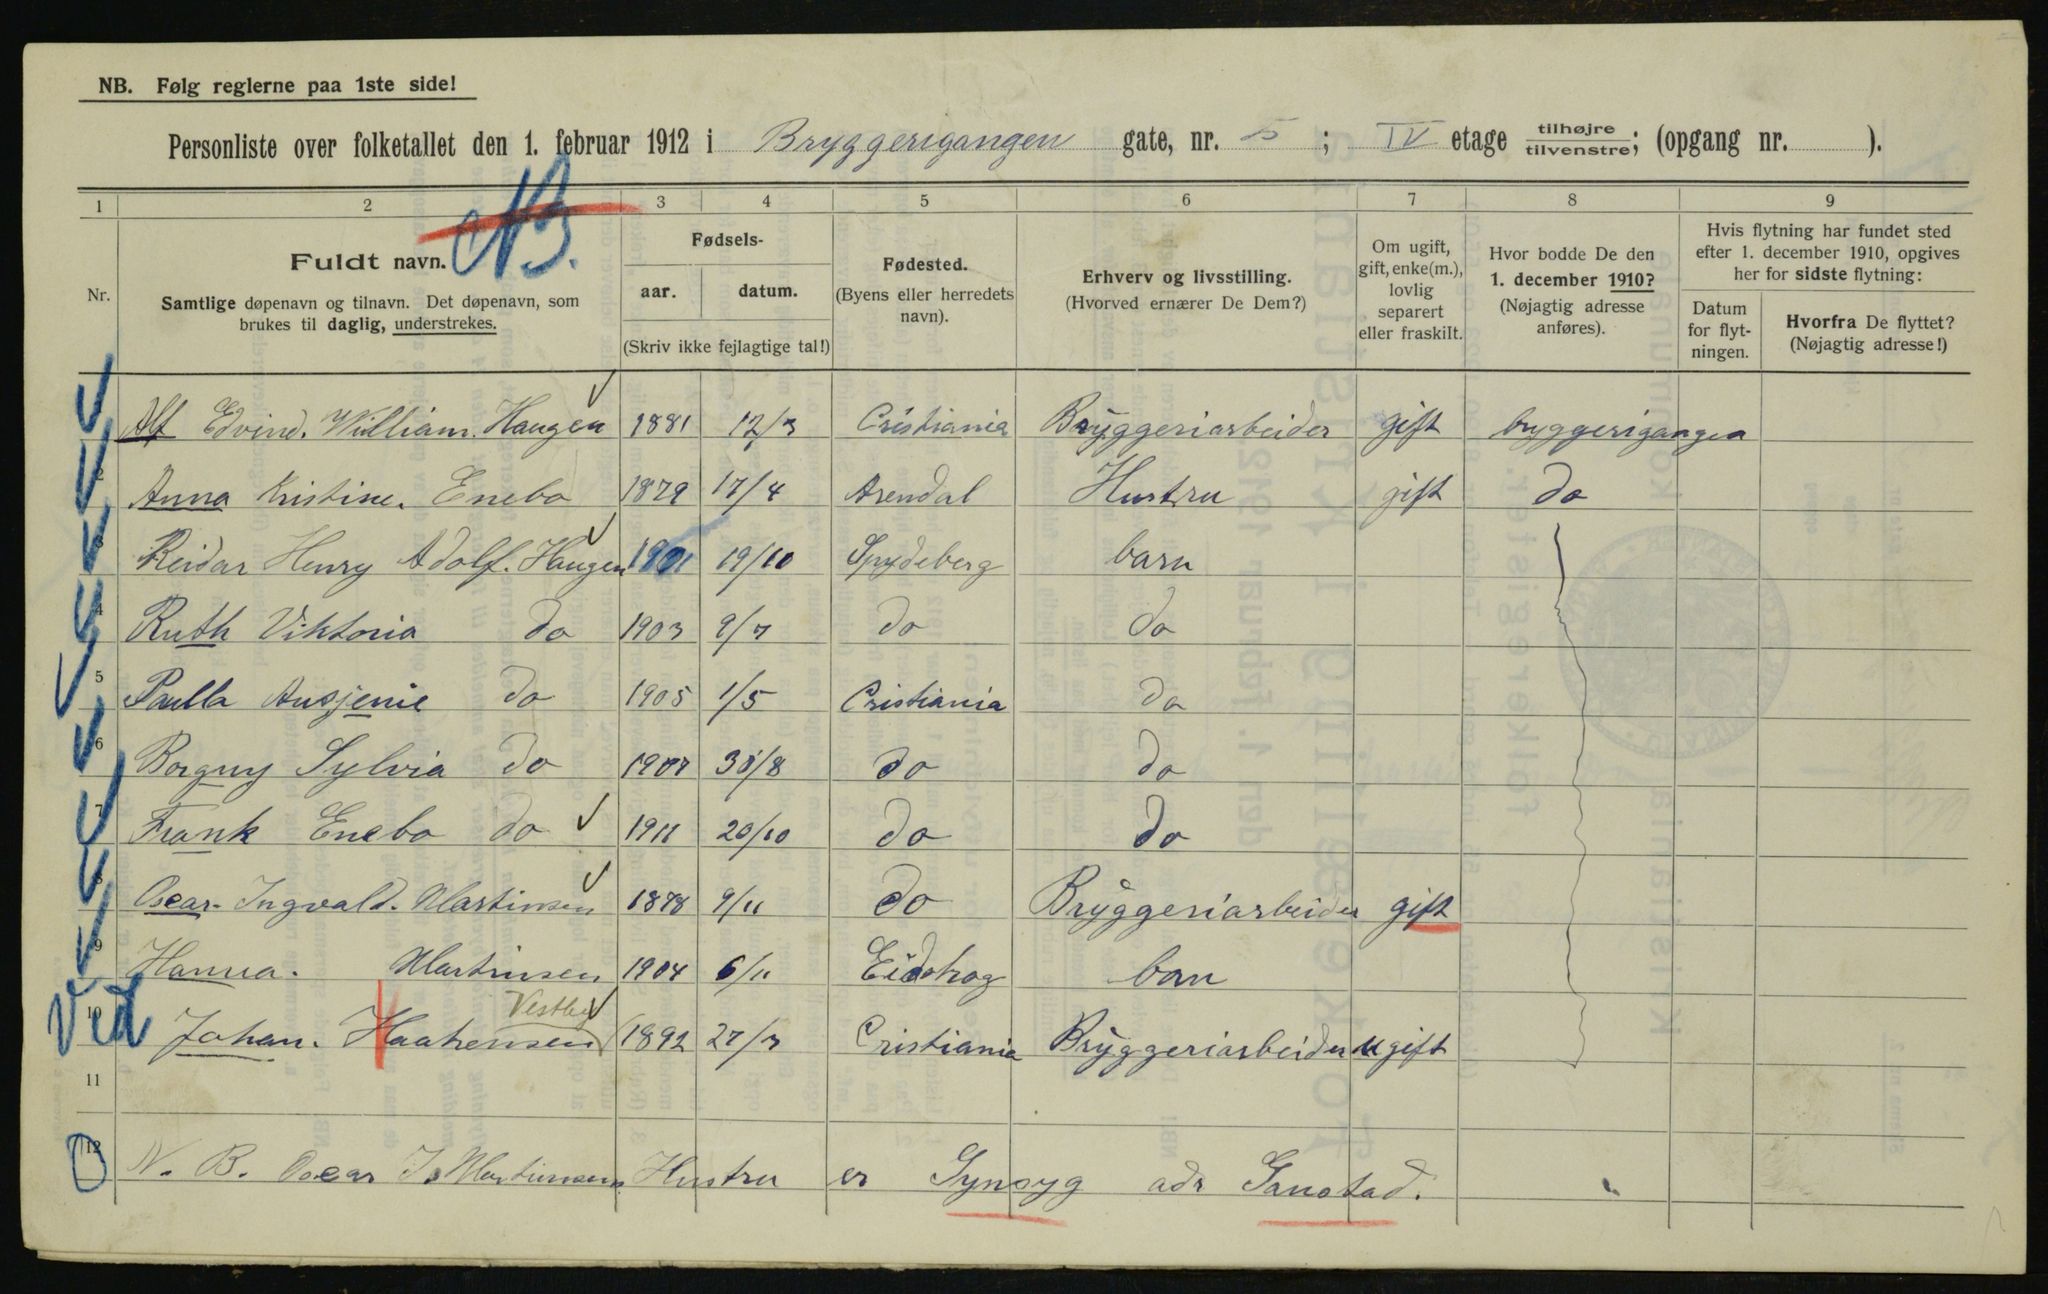 NB. Følg reglerne paa 1ste side!
Personliste over folketallet den 1. februar 1912 i Bryggerigangen gate, nr. 5 ; IV etage tilhøjre tilvenstre; (opgang nr. ).
1 2 3 4 5 6 7 8 9
NB.
Nr.
Fuldt navn.
Samtlige døpenavn og tilnavn. Det døpenavn, som
brukes til daglig, understrekes.
Fødsels-
aar. datum.
(Skriv ikke fejlagtige tal!)
Fødested.
(Byens eller herredets
navn).
Erhverv og livsstilling.
(Hvorved ernærer De Dem?)
Om ugift,
gift, enke(m.),
lovlig
separert
eller fraskilt.
Hvor bodde De den
1. december 1910?
(Nøjagtig adresse
anføres).
Hvis flytning har fundet sted
efter 1. december 1910, opgives
her for sidste flytning:
Datum
for flyt-
ningen.
Hvorfra De flyttet?
(Nøjagtig adresse!)
Alf Edvind. William. Haugen 1881 12/3 Cristiania Bryggeriarbeider gift bryggerigangen
2 Anna Kristine. Enebo 1879 17/4 Arendal Hustru gift do
3 Reidar Henry Adolf. Haugen 1901 19/10 Spydeberg barn
4 Ruth Viktoria do 1903 9/7 do do
5 Paulla Ausjenie do 1905 1/5 Cristiania do
6 Borguy Sylvia do 1907 30/8 do do
7 Frank Enebo do 1911 20/10 do do
8 Oscar. Ingvald. Martinsen 1878 9/11 do Bryggeriarbeider gift
9 Hanna. Martinsen 1904 6/11 Eidskog barn
Vestby
10 Ved Johan. Haakensen 1892 27/3 Cristiania Bryggeriarbeider ugift
11
12 N. B. Oscar I. Martinsens Hustru er Synsyg adr Ganstad.